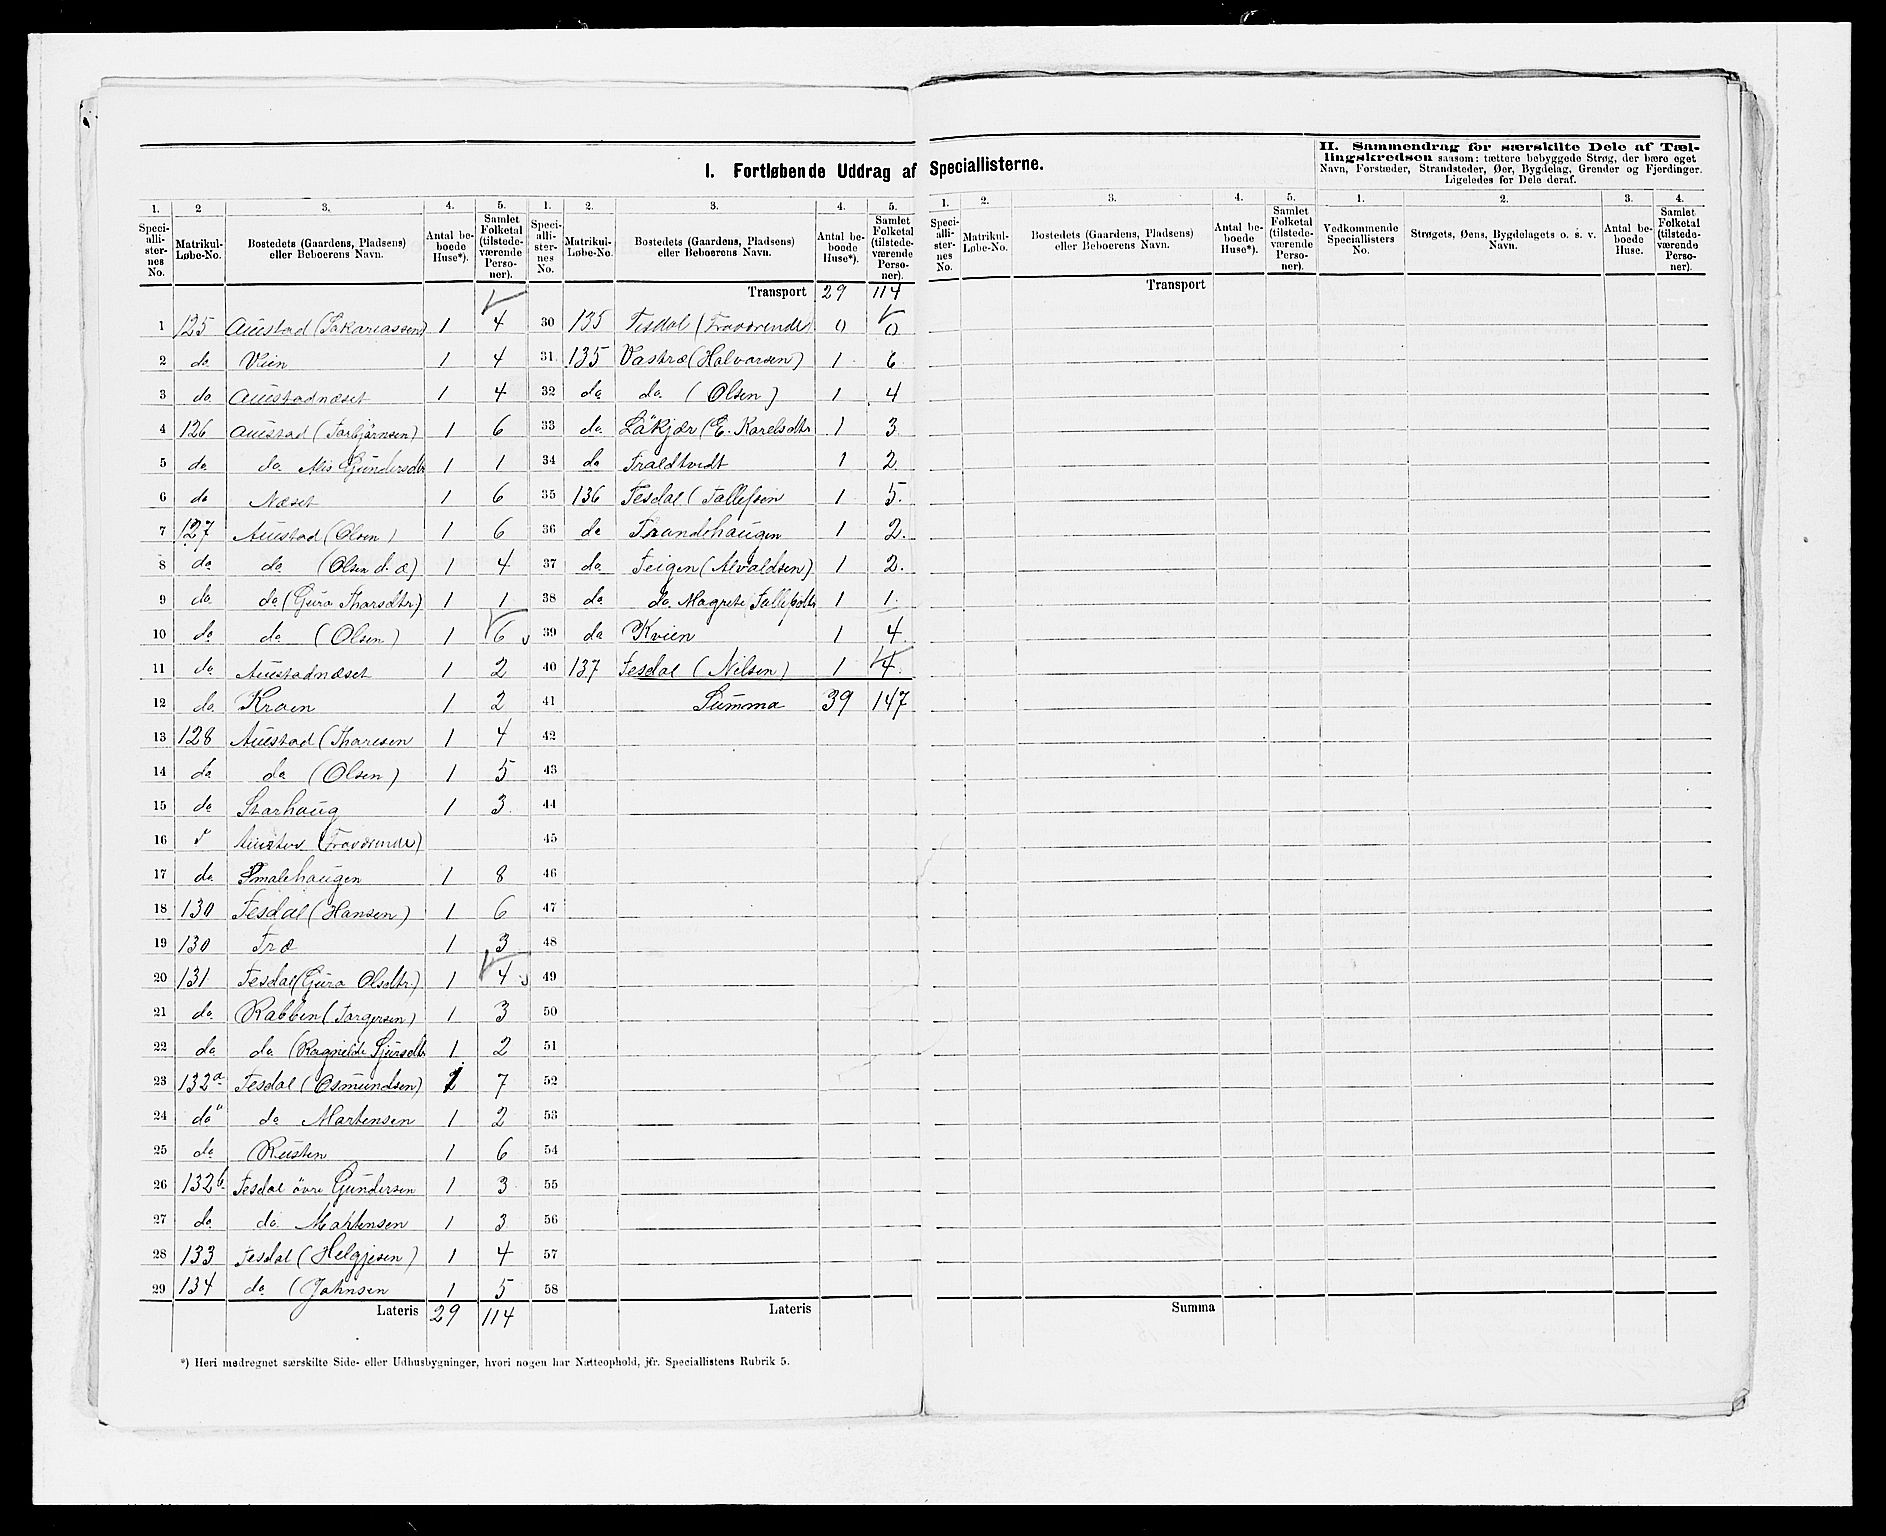 I. Fortløbende Uddrag af Speciallisterne.
II. Sammendrag for særskilte Dele af Tæl-
lingskredsen saasom: tættere bebyggede Strøg, der bære eget
Navn, Forstæder, Strandsteder, Øer, Bygdelag, Grender og Fjerdinger.
Ligeledes for Dele deraf.
1. 2 3. 4. 5. 1. 2. 3. 4. 5. 1. 2. 3. 4. 5. 1. 2. 3. 4.
Speci-alli-ster-nes No. Matrikul-Løbe-No. Bostedets (Gaardens, Pladsens) eller Beboerens Navn. Antal be-boede Huse*). Samlet Folketal (tilstede-værende Perso-ner).
Speci-alli-ster-nes No. Matrikul-Løbe-No. Bostedets (Gaardens, Pladsens) eller Beboerens Navn. Antal be-boede Huse*). Samlet Folketal (tilstede-værende Perso-ner).
Speci-alli-ster-nes No. Matrikul-Løbe-No. Bostedets (Gaardens, Pladsens) eller Beboerens Navn. Antal be-boede Huse*). Samlet Folketal (tilstede-værende Perso-ner).
Vedkommende Speciallisters No. Strøgets, Øens, Bygdelagets o. s. v. Navn. Antal be-boede Huse. Samlet Folketal (tilstede-værende Perso-ner).
1 125 Austad (Sakariassen) 1 4
2 do. Veien 1 4
3 do Austadnæset 1 4
4 126 Austad (Torbjørnsen) 1 6
5 do do Alis Gundersdtr 1 1
6 do Næset 1 6
7 127 Austad (Olsen) 1 6
8 do do (Olsen d. æ) 1 4
9 do do (Guro Thorsdtr) 1 1
10 do do (Olsen) 1 6
11 do Austadnæset 1 2
12 do. Kroen 1 2
13 128 Austad (Thoresen 1 4
14 do do (Olsen) 1 5
15 do Storhaug 1 3
16 (Fraværende)
17 do. Smalehaugen 1 8
18 130 Tesdal (Hansen) 1 6
19 130 Træ 1 3
20 131 Tesdal (Guro Olsdtr) 1 4
21 do. Rabben (Torgersen) 1 3
22 do do (Ragnilde Sjursdtr 1 2
23 132a Tesdal (Osmundsen) 7
24 do" do Martensen 1 2
25 do Rusten 1 6
26 132b. Tesdal övre Gundersen 1 3
27 do do. Martensen 1 3
28 133 Tesdal (Helgjesen) 1 4
29 134 do (Johnsen 1 5
Lateris 29 114
Transport 29 114
30 135 Tesdal (Fraværende) 0 0
31. 135 Vastræ (Halvorsen) 1 6
32 do do (Olsen) 1 4
33 do. Låkjær (E. Karelsdtr 1 3
34 do Traldtvedt 1 2
35 136 Tesdal (Tollefsen 1 5.
36 do Trandehaugen 1 2.
37 do Teigen (Alvaldsen) 1 2.
38 do do. Magrete Tollefsdtr 1 1.
39 do Kvien 1 4.
40 137 Tesdal (Nilsen) 1 4.
41 Summa 39 147
42
43
44
45
46
47
48
49
50
51
52
53
54
55
56
57
58
Lateris
Transport
Summa
*) Heri medregnet særskilte Side- eller Udhusbygninger, hvori nogen har Natteophold, jfr. Speciallistens Rubrik 5.